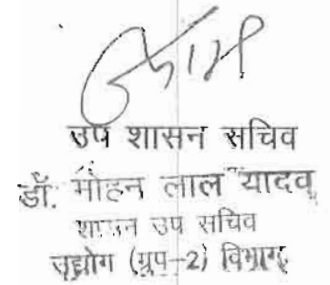 उप शासन सचिव
डॉ. मोहन लाल यादव
शासन उप सचिव
उद्योग (ग्रुप-2) विभाग